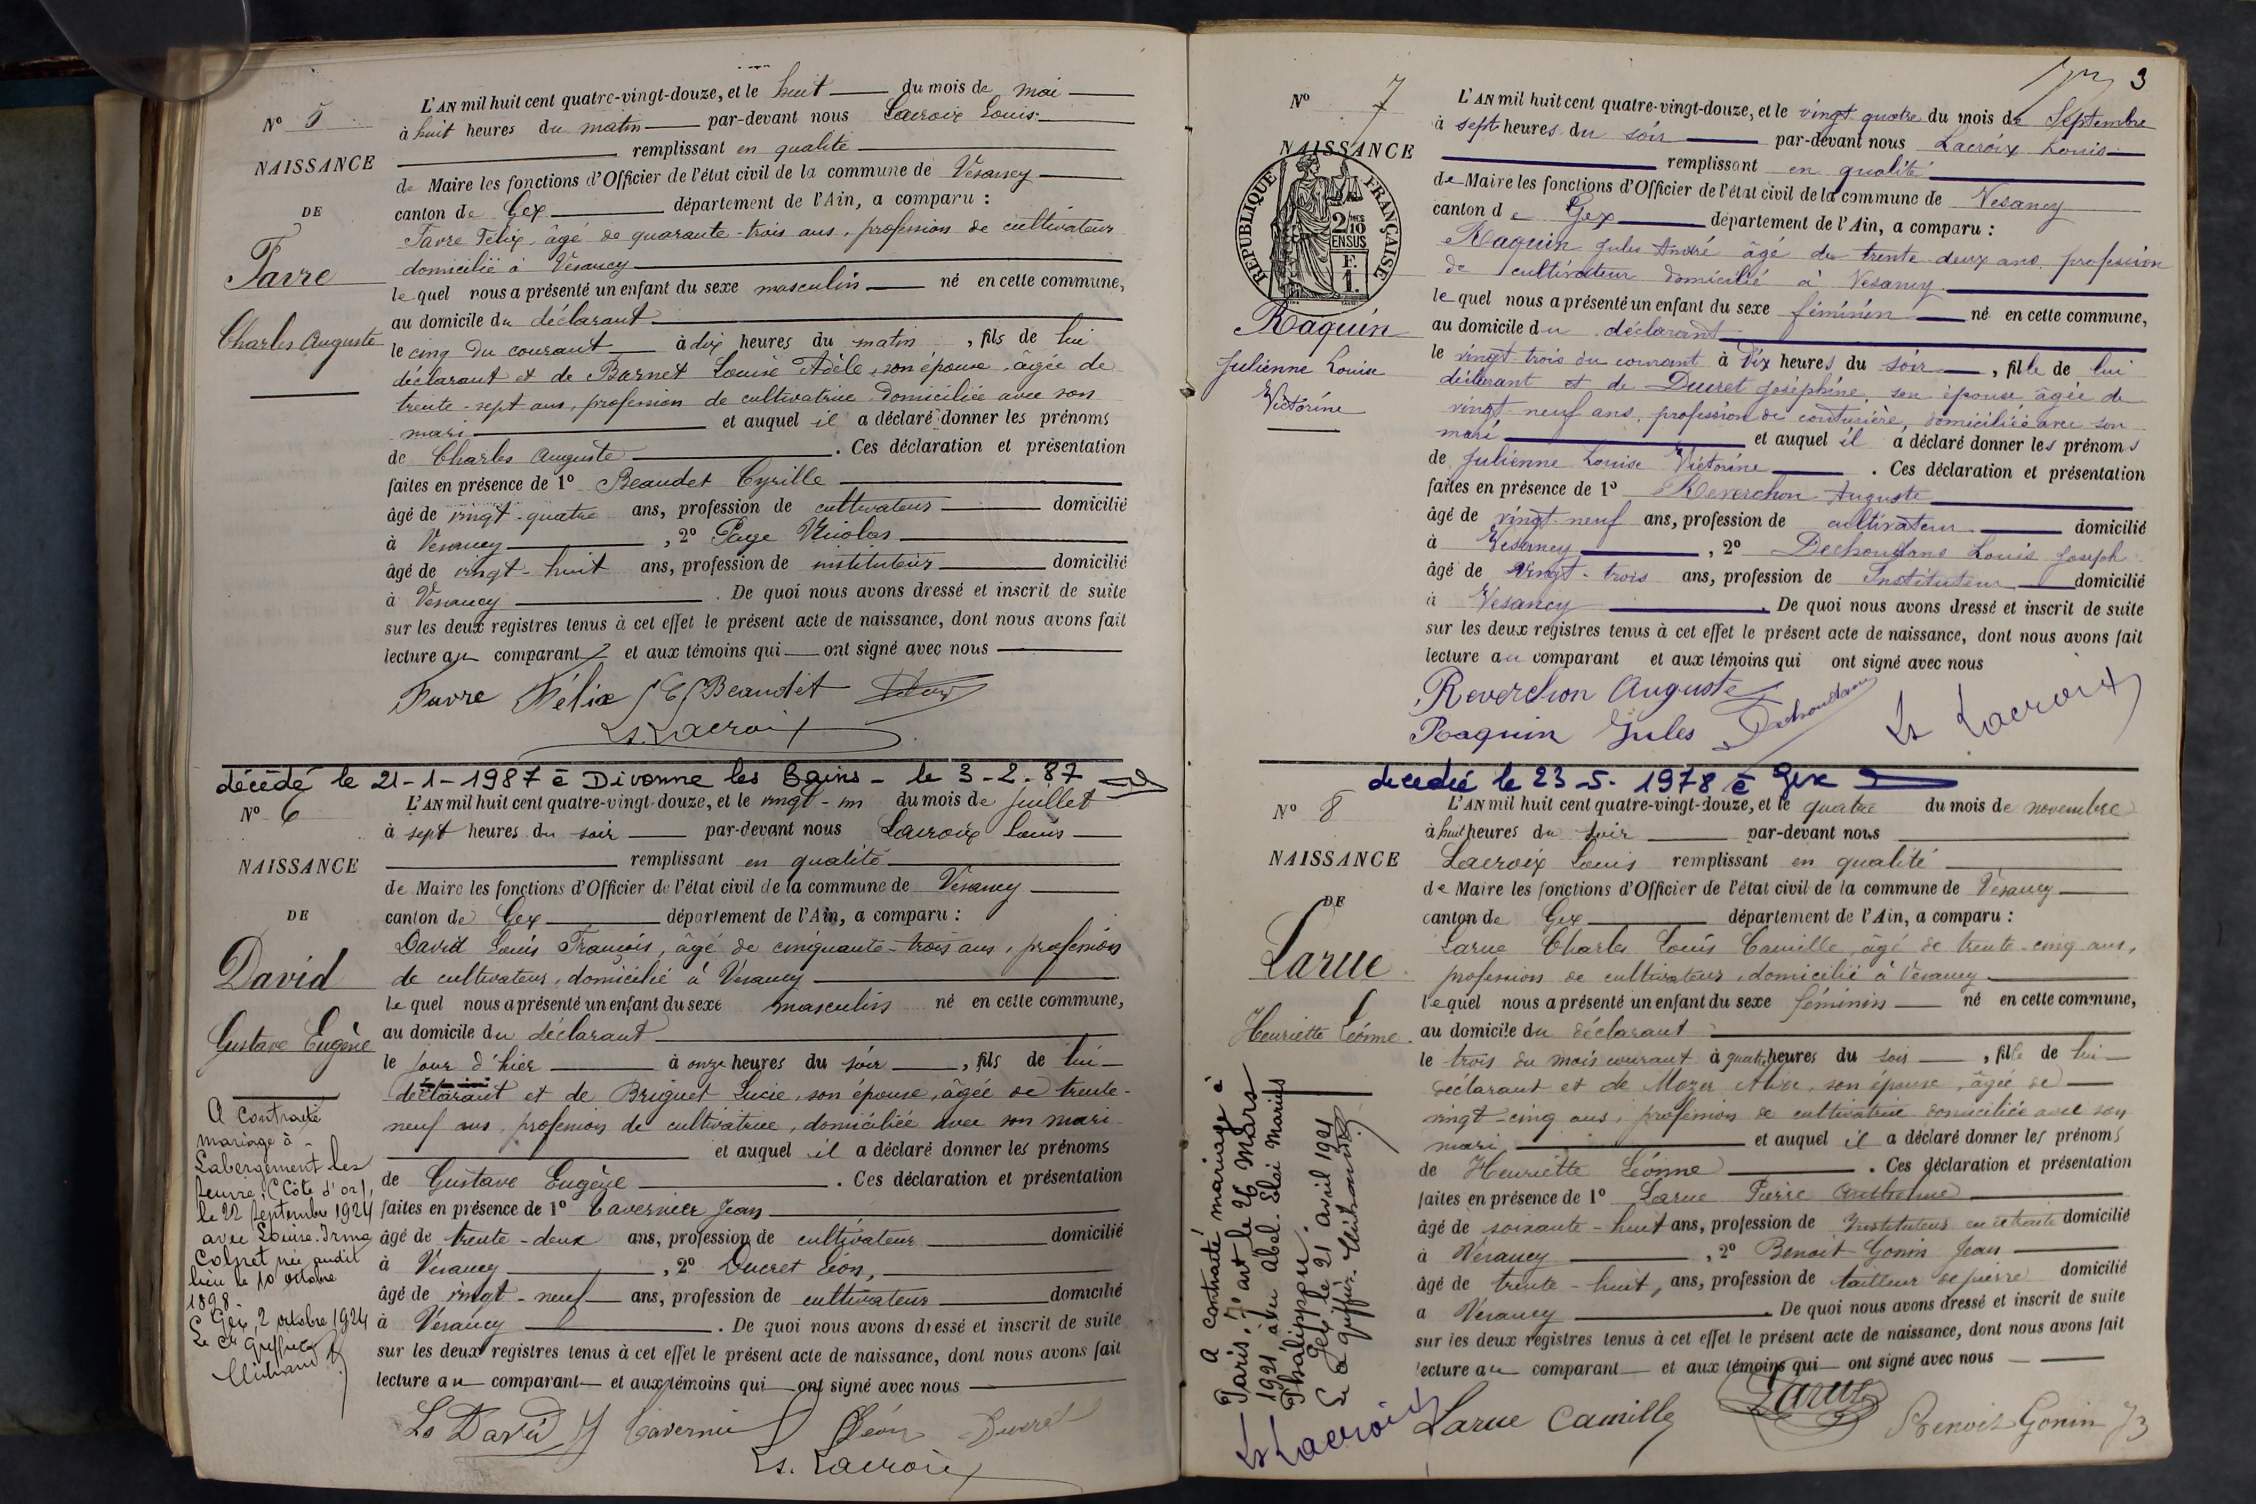 N° 5
NAISSANCE
DE
Favre
Charles Auguste
L'AN mil huit cent quatre-vingt-douze, et le huit du mois de mai
à huit heures du matin par-devant nous Lacroix Louis
remplissant en qualité
de Maire les fonctions d'Officier de l'état civil de la commune de Vesancy
canton de Gex département de l'Ain, a comparu :
Favre Félix, âgé de quarante-trois ans, profession de cultivateur
domicilié à Vesancy
lequel nous a présenté un enfant du sexe masculin né en cette commune,
au domicile du déclarant
le cinq du courant à dix heures du matin, fils de lui
déclarant et de Barnet Louise Adèle, son épouse, âgée de
trente-sept ans, profession de cultivatrice domiciliée avec son
mari et auquel il a déclaré donner les prénoms
de Charles Auguste. Ces déclaration et présentation
faites en présence de 1° Beaudet Cyrille
âgé de vingt-quatre ans, profession de cultivateur domicilié
à Vesancy, 2° Page Nicolas
âgé de vingt-huit ans, profession de instituteur domicilié
à Vesancy. De quoi nous avons dressé et inscrit de suite
sur les deux registres tenus à cet effet le présent acte de naissance, dont nous avons fait
lecture au comparant et aux témoins qui ont signé avec nous
Favre Félix C Beaudet
Ls. Lacroix
décédé le 21-1-1987 à Divonne les Bains - le 3-2-87
N° 6
NAISSANCE
DE
David
Gustave Eugène
A contracté
mariage à
Labergement les
Seurre (Côte d'or),
le 22 septembre 1924
avec Louise Irma
Colpret née audit
lieu le 10 octobre
1898.
Gex, 2 octobre 1924
Le Cs Greffier
L'AN mil huit cent quatre-vingt-douze, et le vingt-un du mois de Juillet
à sept heures du soir par-devant nous Lacroix Louis
remplissant en qualité
de Maire les fonctions d'Officier de l'état civil de la commune de Vesancy
canton de Gex département de l'Ain, a comparu :
David Louis François, âgé de cinquante-trois ans, profession
de cultivateur, domicilié à Vesancy
lequel nous a présenté un enfant du sexe masculin né en cette commune,
au domicile du déclarant
le jour d'hier à onze heures du soir, fils de lui
déclarant et de Briguet Lucie, son épouse, âgée de trente-
neuf ans, profession de cultivatrice, domiciliée avec son mari
et auquel il a déclaré donner les prénoms
de Gustave Eugène. Ces déclaration et présentation
faites en présence de 1° Tavernier Jean
âgé de trente-deux ans, profession de cultivateur domicilié
à Vesancy, 2° Ducret Léon,
âgé de vingt-neuf ans, profession de cultivateur domicilié
à Vesancy. De quoi nous avons dressé et inscrit de suite
sur les deux registres tenus à cet effet le présent acte de naissance, dont nous avons fait
lecture au comparant et aux témoins qui ont signé avec nous
Ls David Tavernier Léon Ducret
Ls. Lacroix
3
N° 7
NAISSANCE
RÉPUBLIQUE FRANÇAISE
2/10 EN SUS
F. 1.
Raquin
Julienne Louise
Victorine
L'AN mil huit cent quatre-vingt-douze, et le vingt quatre du mois de Septembre
à sept heures du soir par-devant nous Lacroix Louis
remplissant en qualité
de Maire les fonctions d'Officier de l'état civil de la commune de Vesancy
canton de Gex département de l'Ain, a comparu :
Raquin Jules André âgé de trente-deux ans, profession
de cultivateur domicilié à Vesancy.
lequel nous a présenté un enfant du sexe féminin né en cette commune,
au domicile du déclarant
le vingt-trois du courant à dix heures du soir, fille de lui
déclarant et de Ducret Joséphine, son épouse âgée de
vingt-neuf ans, profession de couturière, domiciliée avec son
mari et auquel il a déclaré donner les prénoms
de Julienne Louise Victorine. Ces déclaration et présentation
faites en présence de 1° Reverchon Auguste
âgé de vingt-neuf ans, profession de cultivateur domicilié
à Vesancy, 2° Dechoudans Louis Joseph
âgé de vingt-trois ans, profession de Instituteur domicilié
à Vesancy. De quoi nous avons dressé et inscrit de suite
sur les deux registres tenus à cet effet le présent acte de naissance, dont nous avons fait
lecture au comparant et aux témoins qui ont signé avec nous
Reverchon Auguste
Raquin Jules Dechoudans Ls Lacroix
décédée le 23-5-1978 à Gex
N° 8
NAISSANCE
DE
Larue
Henriette Léonne
A contracté mariage à
Paris, 7e art le 26 Mars
1921 avec Abel Eloi Marius
Phalippou.
Gex, le 21 avril 1921
Le Cs greffier
L'AN mil huit cent quatre-vingt-douze, et le quatre du mois de novembre
à huit heures du soir par-devant nous
Lacroix Louis remplissant en qualité
de Maire les fonctions d'Officier de l'état civil de la commune de Vesancy
canton de Gex département de l'Ain, a comparu :
Larue Charles Louis Camille, âgé de trente-cinq ans,
profession de cultivateur, domicilié à Vesancy
lequel nous a présenté un enfant du sexe féminin né en cette commune,
au domicile du déclarant
le trois du mois courant à quatre heures du soir, fille de lui
déclarant et de Mozer Alice, son épouse, âgée de
vingt-cinq ans, profession de cultivatrice domiciliée avec son
mari et auquel il a déclaré donner les prénoms
de Henriette Léonne. Ces déclaration et présentation
faites en présence de 1° Larue Pierre
âgé de soixante-huit ans, profession de Instituteur en retraite domicilié
à Vesancy, 2° Benoit Gonin Jean
âgé de trente-huit, ans, profession de tailleur de pierre domicilié
à Vesancy. De quoi nous avons dressé et inscrit de suite
sur les deux registres tenus à cet effet le présent acte de naissance, dont nous avons fait
lecture au comparant et aux témoins qui ont signé avec nous
Ls Lacroix Larue Camille Larue Benoit Gonin J